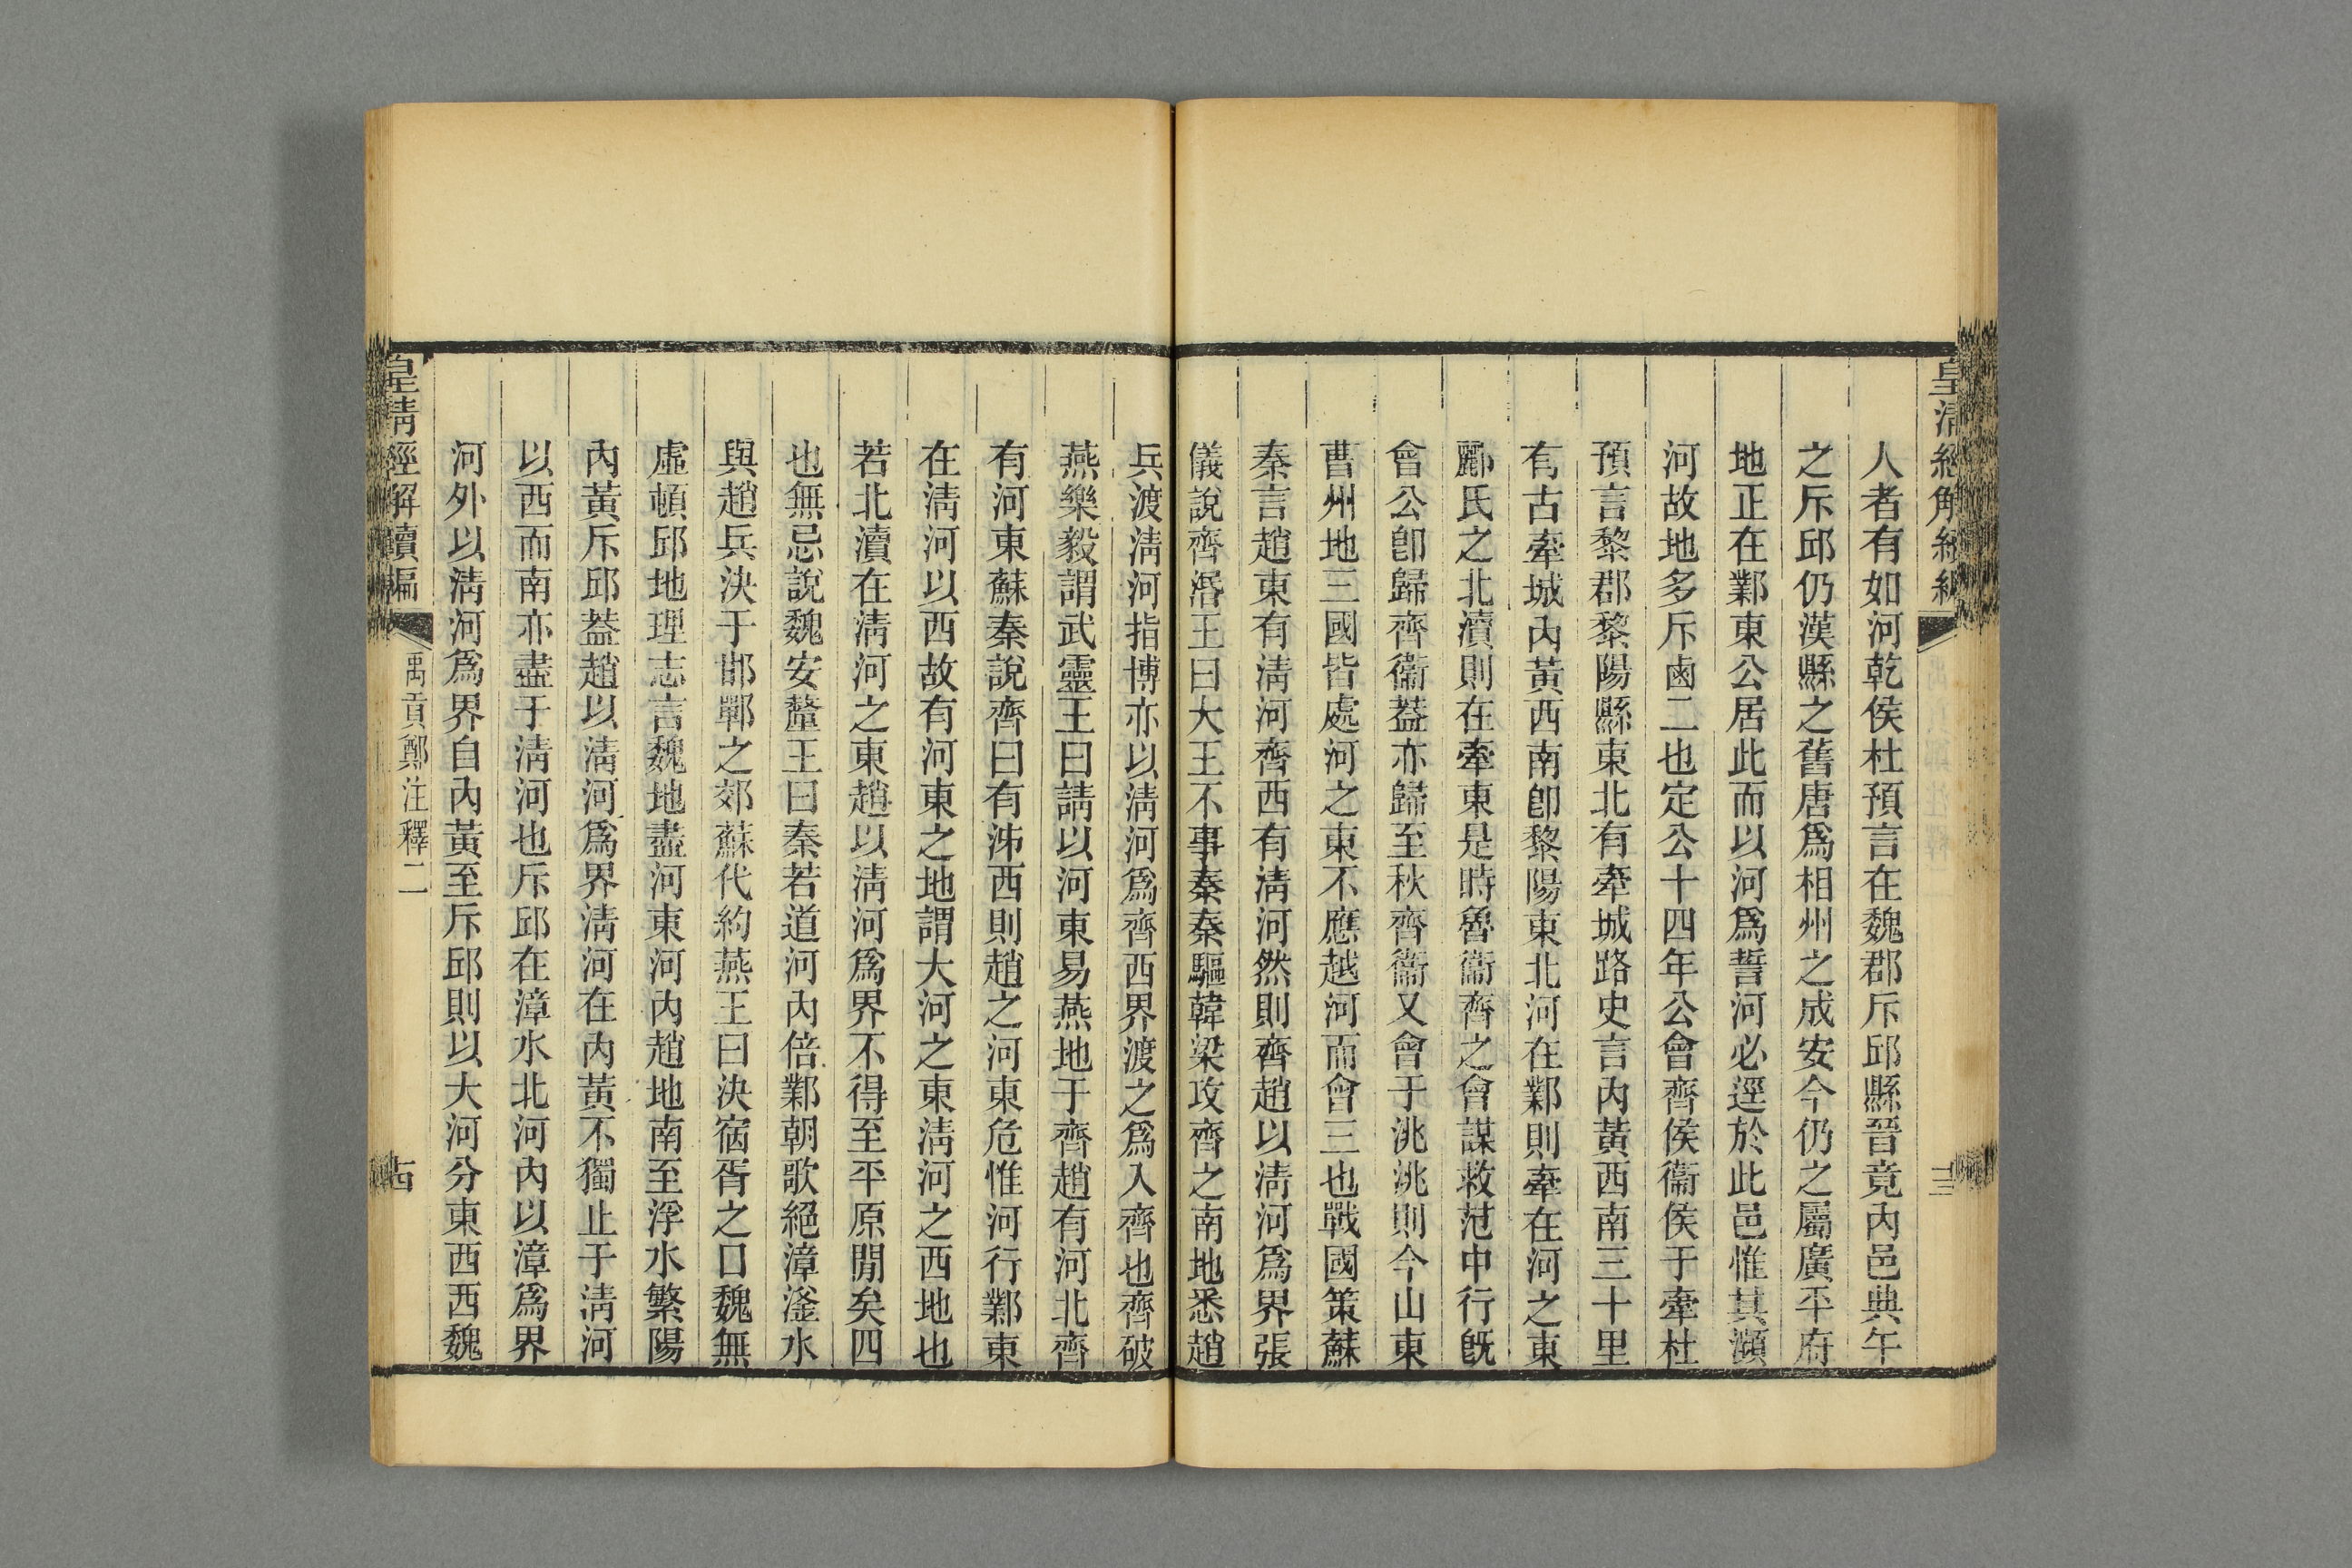 人者有如河乾侯杜預言在魏郡斥邱縣晉竟內邑典午
之斥邱仍漢縣之舊唐爲相州之成安今仍之屬廣平府
地正在鄴東公居此而以河爲誓河必逕於此邑惟其瀕
河故地多斥鹵二也定公十四年公會齊侯衞侯于牽杜
預言黎郡黎陽縣東北有牽城路史言內黃西南三十里
有古牽城內黃西南卽黎陽東北河在鄴則牽在河之東
酈氏之北瀆則在牽東是時魯衞齊之會謀救范中行旣
會公卽歸齊衞葢亦歸至秋齊衞又會于洮洮則今山東
曹州地三國皆處河之東不應越河而會三也戰國策蘇
秦言趙東有淸河齊西有淸河然則齊趙以淸河爲界張
儀說齊湣王曰大王不事秦秦驅韓梁攻齊之南地悉趙
兵渡淸河指博亦以淸河爲齊西界渡之爲入齊也齊破
燕樂毅謂武靈王曰請以河東易燕地于齊趙有河北齊
有河東蘇秦說齊曰有泲西則趙之河東危惟河行鄴東
在淸河以西故有河東之地謂大河之東淸河之西地也
若北瀆在淸河之東趙以淸河爲界不得至平原閒矣四
也無忌說魏安釐王曰秦若道河內倍鄴朝歌絕漳滏水
與趙兵決于邯鄲之郊蘇代約燕王曰決宿胥之口魏無
虛頓邱地理志言魏地盡河東河內趙地南至浮水繁陽
內黃斥邱葢趙以淸河爲界淸河在內黃不獨止于淸河
以西而南亦盡于淸河也斥邱在漳水北河內以漳爲界
河外以淸河爲界自內黃至斥邱則以大河分東西西魏
皇淸經解續編
禹貢鄭注釋二